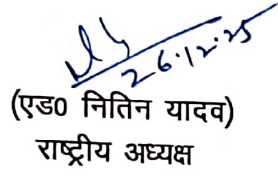 26.12.25
(एड0 नितिन यादव)
राष्ट्रीय अध्यक्ष